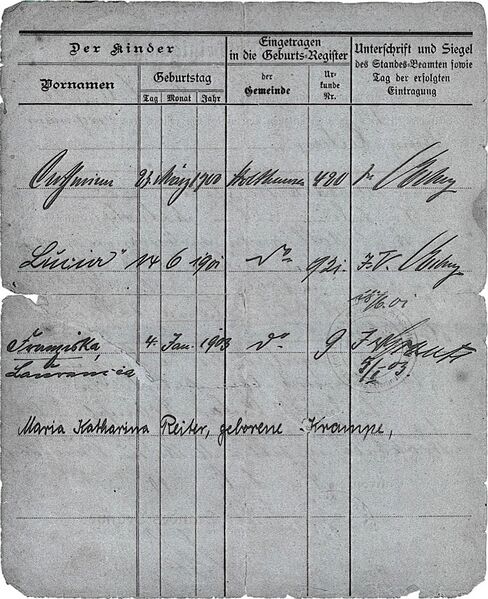 Der Kinder
Eingetragen
in die Geburts-Register
Unterschrift und Siegel
des Standes-Beamten sowie
Tag der erfolgten
Eintragung
Vornamen
Geburtstag
Tag Monat Jahr
der
Gemeinde
Ur-
kunde
Nr.
23. März 1900 420
Lucia 14 6 1901 do 921. J.V.
18/6.01
Franziska, 4. Jan. 1903 do 9
Laurancia
5/I 03.
Maria Katharina Reiter, geborene Krampe,